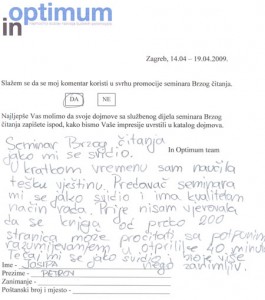 in optimum
Zagreb, 14.04 – 19.04.2009.
Slažem se da se moj komentar koristi u svrhu promocije seminara Brzog čitanja.
DA NE
Najljepše Vas molimo da svoje dojmove sa službenog dijela seminara Brzog
čitanja zapišete ispod, kako bismo Vaše impresije uvrstili u katalog dojmova.
In Optimum team
Seminar Brzog čitanja
jako mi se svidio.
U kratkom vremenu sam naučila
tešku vještinu. Predavač seminara
mi se jako svidio i ima kvalitetan
način rada. Prije nisam vjerovala
da se knjiga od preko 200
stranica može pročitati sa potpunim
razumijevanjem za otprilike 40 minuta.
Tečaj mi se jako svidio i bio je više
nego zanimljiv.
Ime - JOSIPA
Prezime - PETROV
Zanimanje -
Poštanski broj i mjesto -